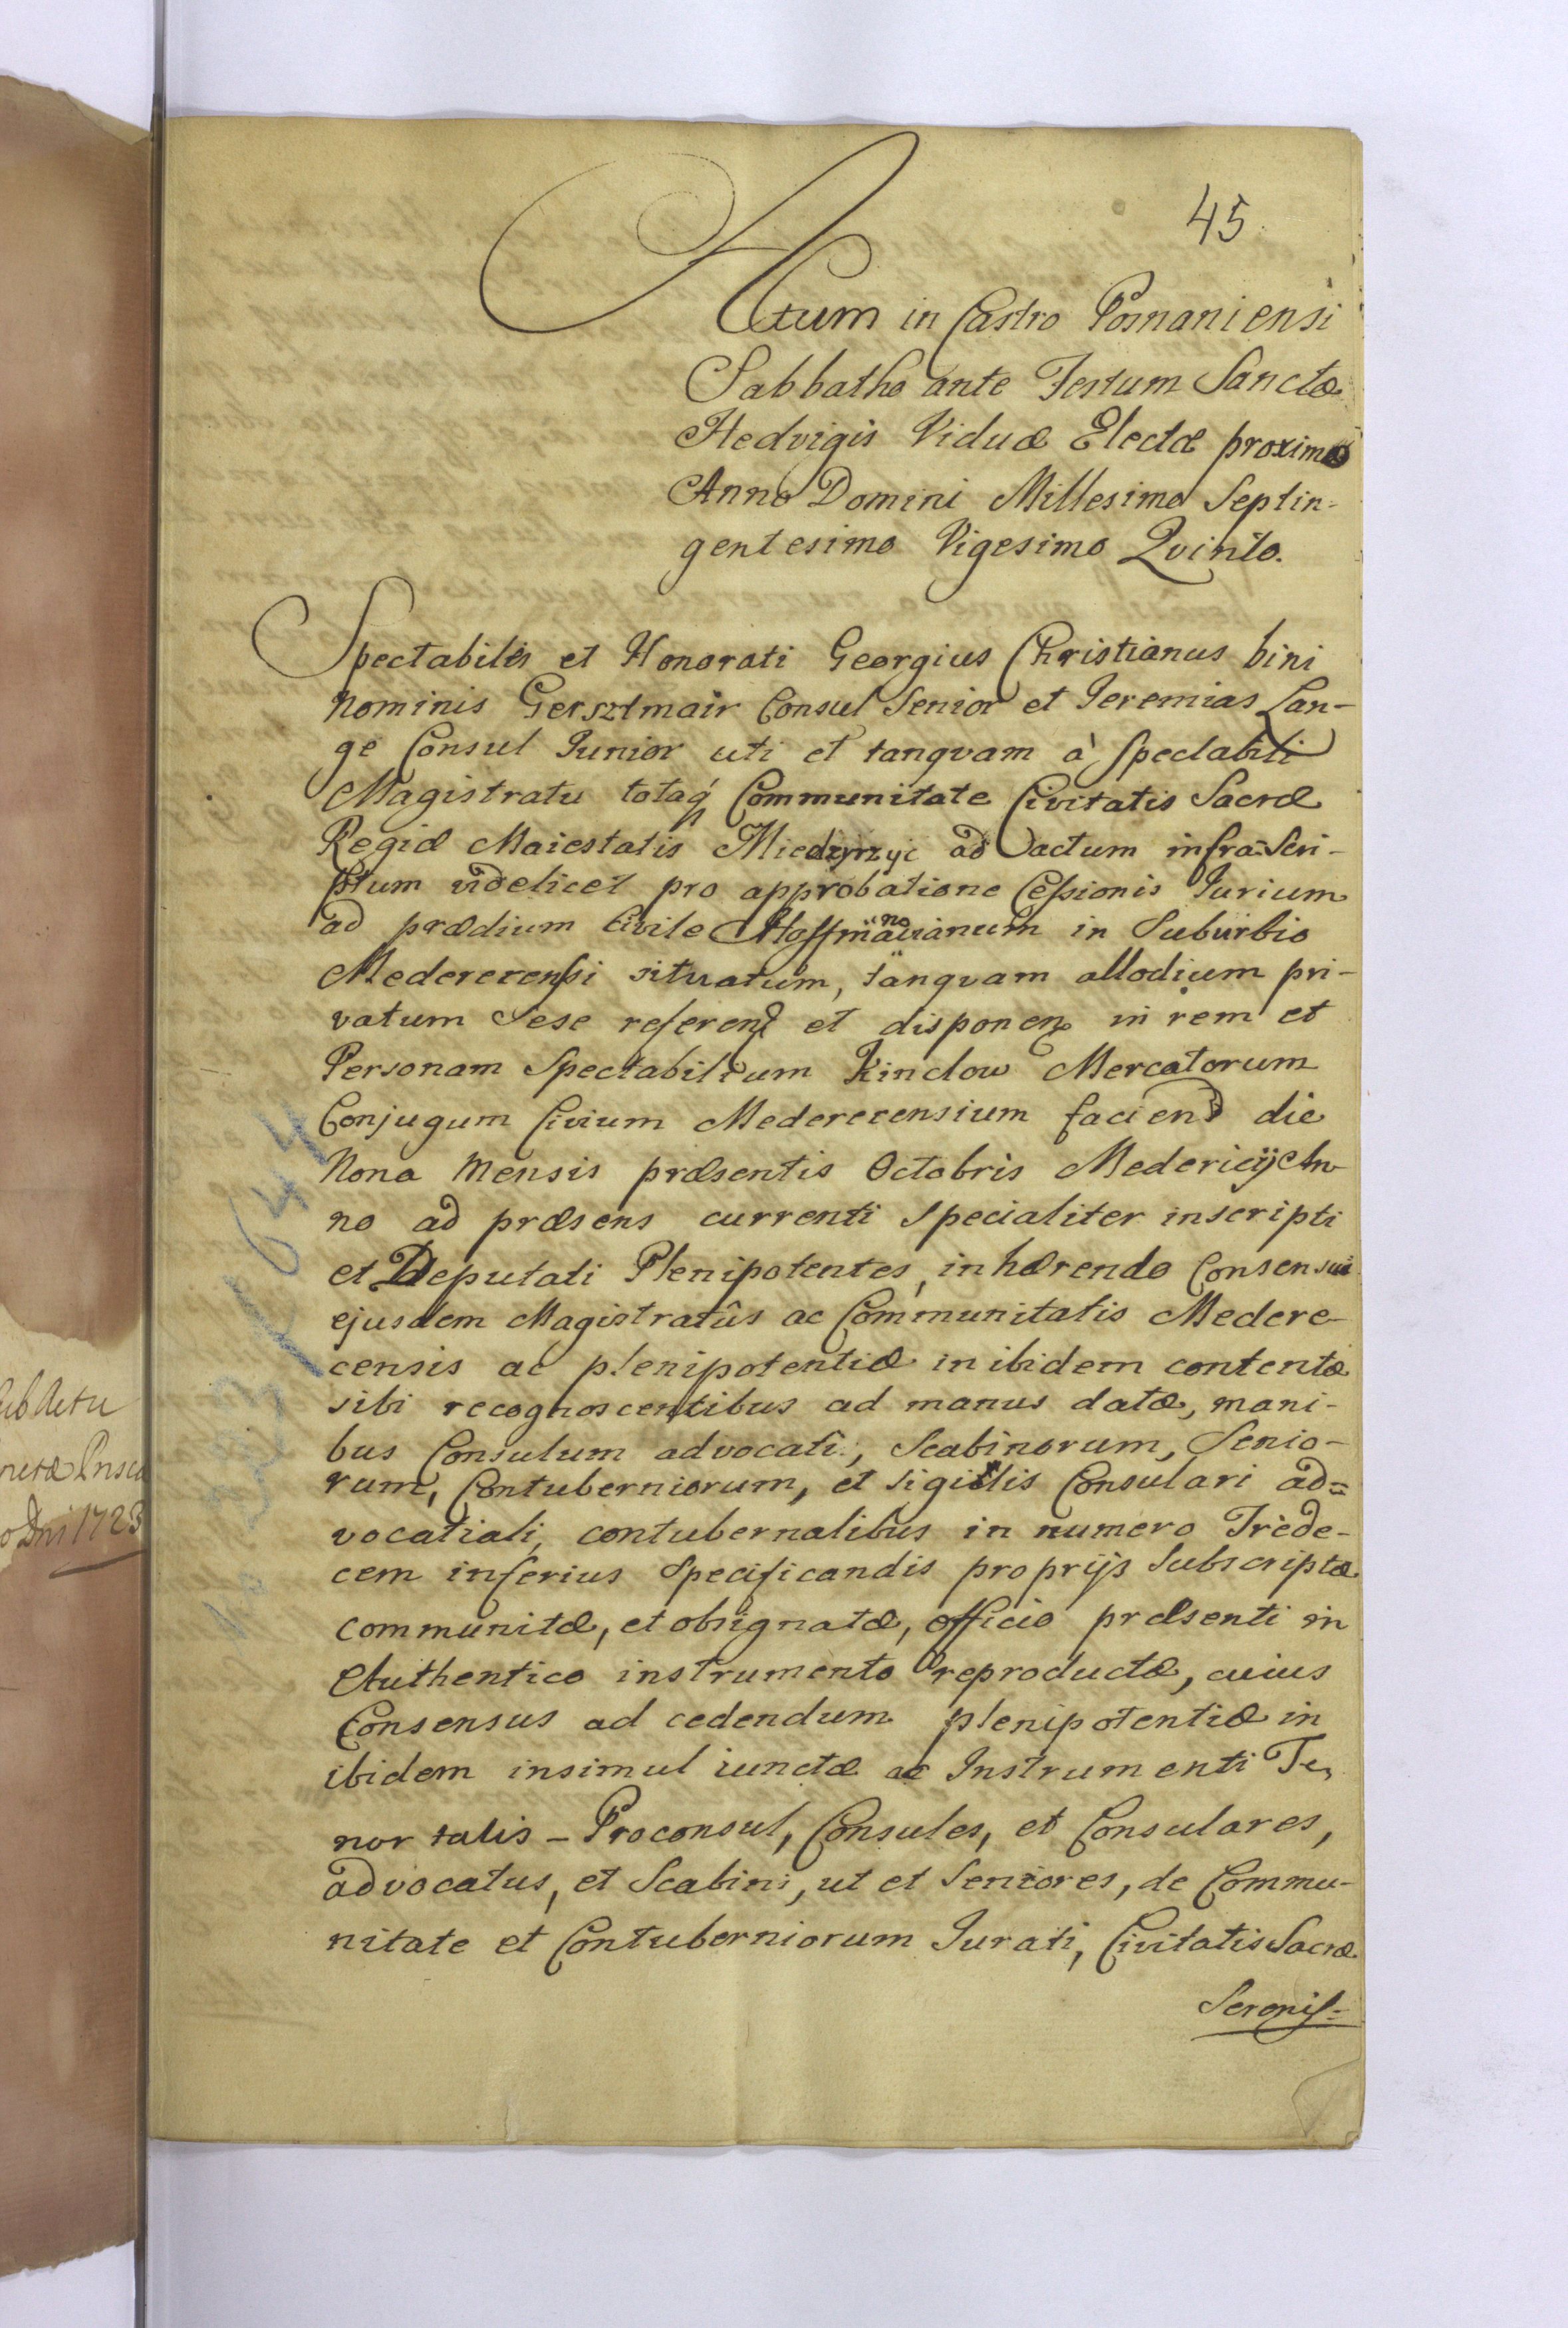 45
Actum in Castro Posnaniensi
Sabbatho ante Festum Sanctæ
Hedvigis Viduæ Electæ proximo
Anno Domini Millesimo Septin-
gentesimo Vigesimo Qvinto.
Spectabiles et Honorati Georgius Christianus bini
nominis Gersztmair Consul Senior et Jeremias Lan-
ge Consul Junior uti et tanqvam à Spectabili
Magistratu totaq́ Communitate Civitatis Sacræ
Regiæ Maiestatis Miedzyrzyc ad actum infra Scri-
ptum videlicet pro approbatione Cessionis Jurium
ad prædium Civile Hoffmanowianum in Suburbio
Medererensi situatum, tanqvam allodium pri-
vatum Sese referen et disponen in rem et
Personam Spectabilium Kinclow Mercatorum
Conjugum Civium Medererensium faciend die
Nona mensis præsentis Octobris Medericij An-
no ad præsens currenti Specialiter inscripti
et Deputati Plenipotentes, inhærendo Consensui
ejusdem Magistratûs ac Communitatis Medere-
censis ac plenipotentiæ in ibidem contentæ
sibi recognoscentibus ad manus datæ, mani-
bus Consulum advocati, Scabinorum, Senio-
rum, Contuberniorum, et sigillis Consulari ad=
vocatiali, contubernalibus in numero Trede-
cem inferius Specificandis proprijs Subscriptæ
communitæ, et obsignatæ, officio præsenti in
Authentico instrumento reproductæ, cuius
Consensus ad cedendum plenipotentiæ in
ibidem insimul iunctæ ac Instrumenti Te,
nor talis – Proconsul, Consules, et Consulares,
advocatus, et Scabini, ut et Seniores, de Commu-
nitate et Contuberniorum Jurati, Civitatis Sacræ
Serenis=
1644
ub Actu
Dni 1723